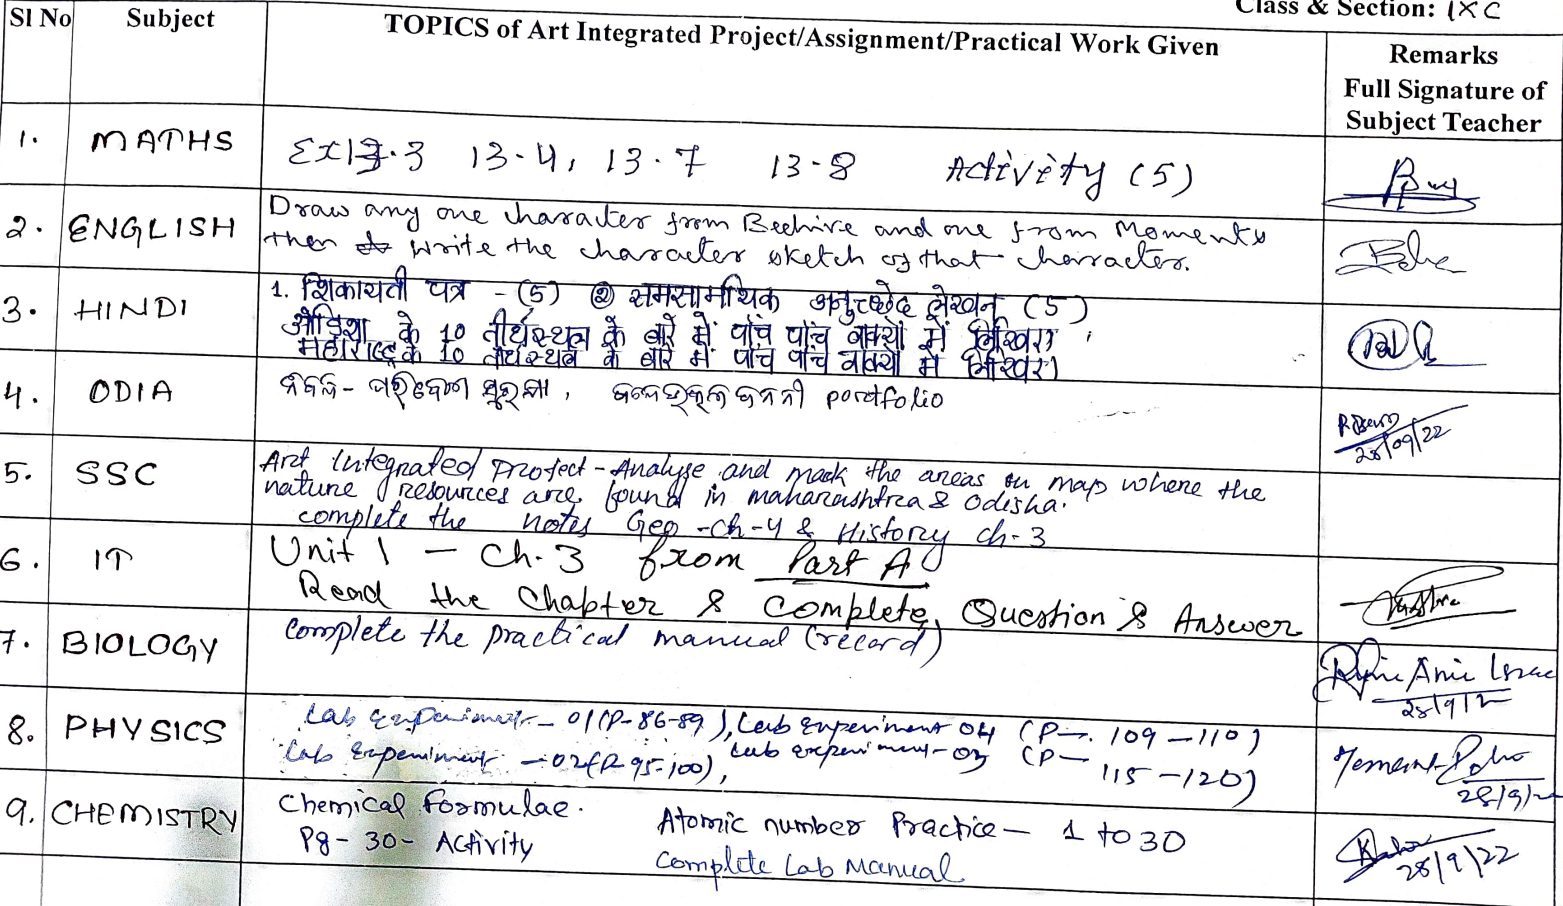 Class & Section: IX C
Sl No Subject TOPICS of Art Integrated Project/Assignment/Practical Work Given Remarks
Full Signature of
Subject Teacher
1. MATHS Ex13.3 13.4, 13.7 13-8 Activity (5)
2. ENGLISH Draw any one character from Beehive and one from Moments
then write the character sketch of that character.
3. HINDI 1. शिकायती पत्र - (5) ② समसामयिक अनुच्छेद लेखन (5)
ओडिशा के 10 तीर्थस्थल के बारे में पांच पांच वाक्यों में लिखिए।
महाराष्ट्र के 10 तीर्थस्थल के बारे में पांच पांच वाक्यों में लिखिए।
4. ODIA ସୁରକ୍ଷା, portfolio
28/09/22
5. SSC Art Integrated project - Analyse and mark the areas on map where the
nature resources are found in maharashtra & Odisha.
complete the notes Geo - ch-4 & History ch-3
6. IT Unit 1 - Ch. 3 from Part A
Read the Chapter & Complete Question & Answer
7. BIOLOGY Complete the practical manual (record)
28/9/2
8. PHYSICS Lab Experiment - 01 (P-86-89), Lab Experiment 04 (P-. 109-110)
Lab Experiment - 02 (P-95-100), Lab experiment - 03 (P-
115-120)
28/9/22
9. CHEMISTRY Chemical Formulae. Atomic number Practice - 1 to 30
Pg - 30 - Activity Complete Lab Manual
28/9/22